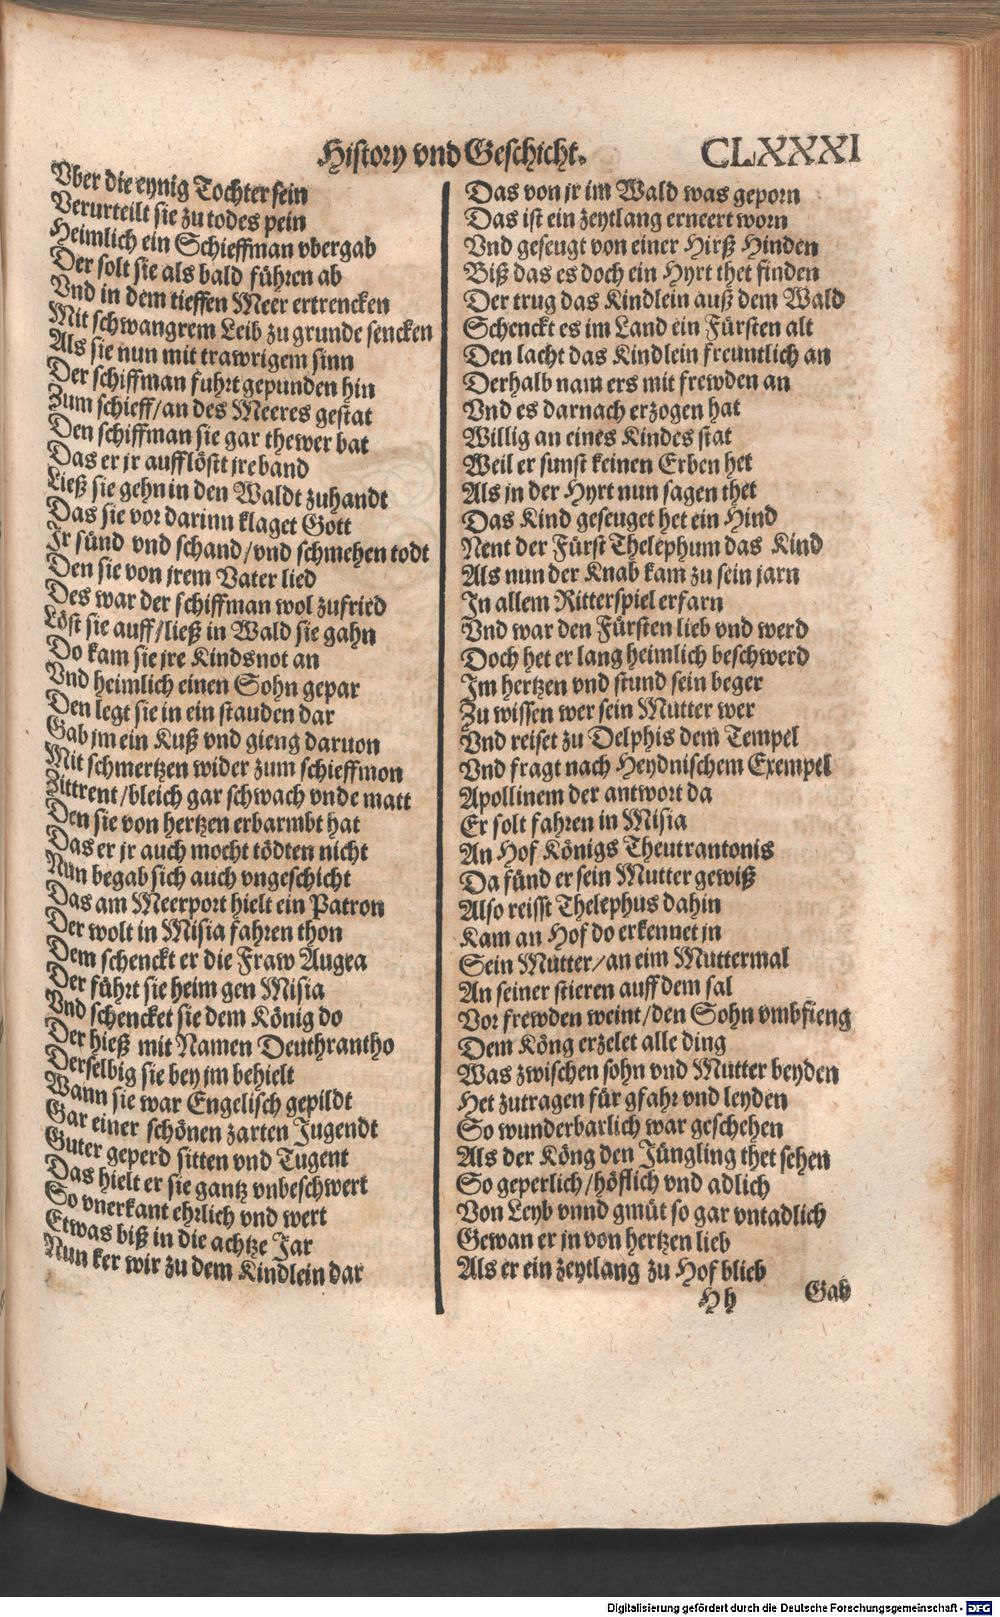 History vnd Geschicht. CLXXXI
Vber die eynig Tochter sein
Verurteilt sie zu todes pein
Heimlich ein Schieffman vbergab
Der solt sie als bald führen ab
Vnd in dem tieffen Meer ertrencken
Mit schwangrem Leib zu grunde sencken
Als sie nun mit trawrigem sinn
Der schiffman fuhrt gepunden hin
Zum schieff/an des Meeres gestat
Den schiffman sie gar thewer bat
Das er jr aufflöst jre band
Ließ sie gehn in den Waldt zuhandt
Das sie vor darinn klaget Gott
Jr sünd vnd schand/vnd schmehen todt
Den sie von jrem Vater lied
Des war der schiffman wol zufried
Löst sie auff/ließ in Wald sie gahn
Do kam sie jre Kindsnot an
Vnd heimlich einen Sohn gepar
Den legt sie in ein stauden dar
Gab jm ein Kuß vnd gieng daruon
Mit schmertzen wider zum schieffmon
Zittrent/bleich gar schwach vnde matt
Den sie von hertzen erbarmbt hat
Das er jr auch mocht tödten nicht
Nun begab sich auch vngeschicht
Das am Meerport hielt ein Patron
Der wolt in Misia fahren thon
Dem schenckt er die Fraw Augea
Der führt sie heim gen Misia
Vnd schencket sie dem König do
Der hieß mit Namen Deuthrantho
Derselbig sie bey jm behielt
Wann sie war Engelisch gepildt
Gar einer schönen zarten Jugendt
Guter geperd sitten vnd Tugent
Das hielt er sie gantz vnbeschwert
So vnerkant ehrlich vnd wert
Etwas biß in die achtze Jar
Nun ker wir zu dem Kindlein dar
Das von jr im Wald was geporn
Das ist ein zeytlang erneert worn
Vnd geseugt von einer Hirß Hinden
Biß das es doch ein Hyrt thet finden
Der trug das Kindlein auß dem Wald
Schenckt es im Land ein Fürsten alt
Den lacht das Kindlein freuntlich an
Derhalb nam ers mit frewden an
Vnd es darnach erzogen hat
Willig an eines Kindes stat
Weil er sunst keinen Erben het
Als jn der Hyrt nun sagen thet
Das Kind geseuget het ein Hind
Nent der Fürst Thelephum das Kind
Als nun der Knab kam zu sein jarn
In allem Ritterspiel erfarn
Vnd war den Fürsten lieb vnd werd
Doch het er lang heimlich beschwerd
Im hertzen vnd stund sein beger
Zu wissen wer sein Mutter wer
Vnd reiset zu Delphis dem Tempel
Vnd fragt nach Heydnischem Exempel
Apollinem der antwort da
Er solt fahren in Misia
An Hof Königs Theutrantonis
Da fünd er sein Mutter gewiß
Also reisst Thelephus dahin
Kam an Hof do erkennet jn
Sein Mutter/an eim Muttermal
An seiner stieren auff dem sal
Vor frewden weint/den Sohn vmbfieng
Dem Köng erzelet alle ding
Was zwischen sohn vnd Mutter beyden
Het zutragen für gfahr vnd leyden
So wunderbarlich war geschehen
Als der Köng den Jüngling thet sehen
So geperlich/höflich vnd adlich
Von Leyb vnnd gmüt so gar vntadlich
Gewan er jn von hertzen lieb
Als er ein zeytlang zu Hof blieb
Hh Gab
Digitalisierung gefördert durch die Deutsche Forschungsgemeinschaft - DFG